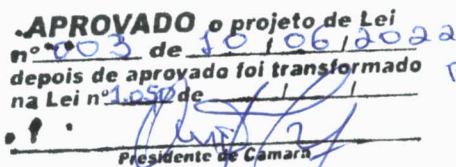 .APROVADO o projeto de Lei
nº 003 de 10 / 06 / 2022
depois de aprovado foi transformado
na Lei nº 1.050 de / /
Presidente de Camara